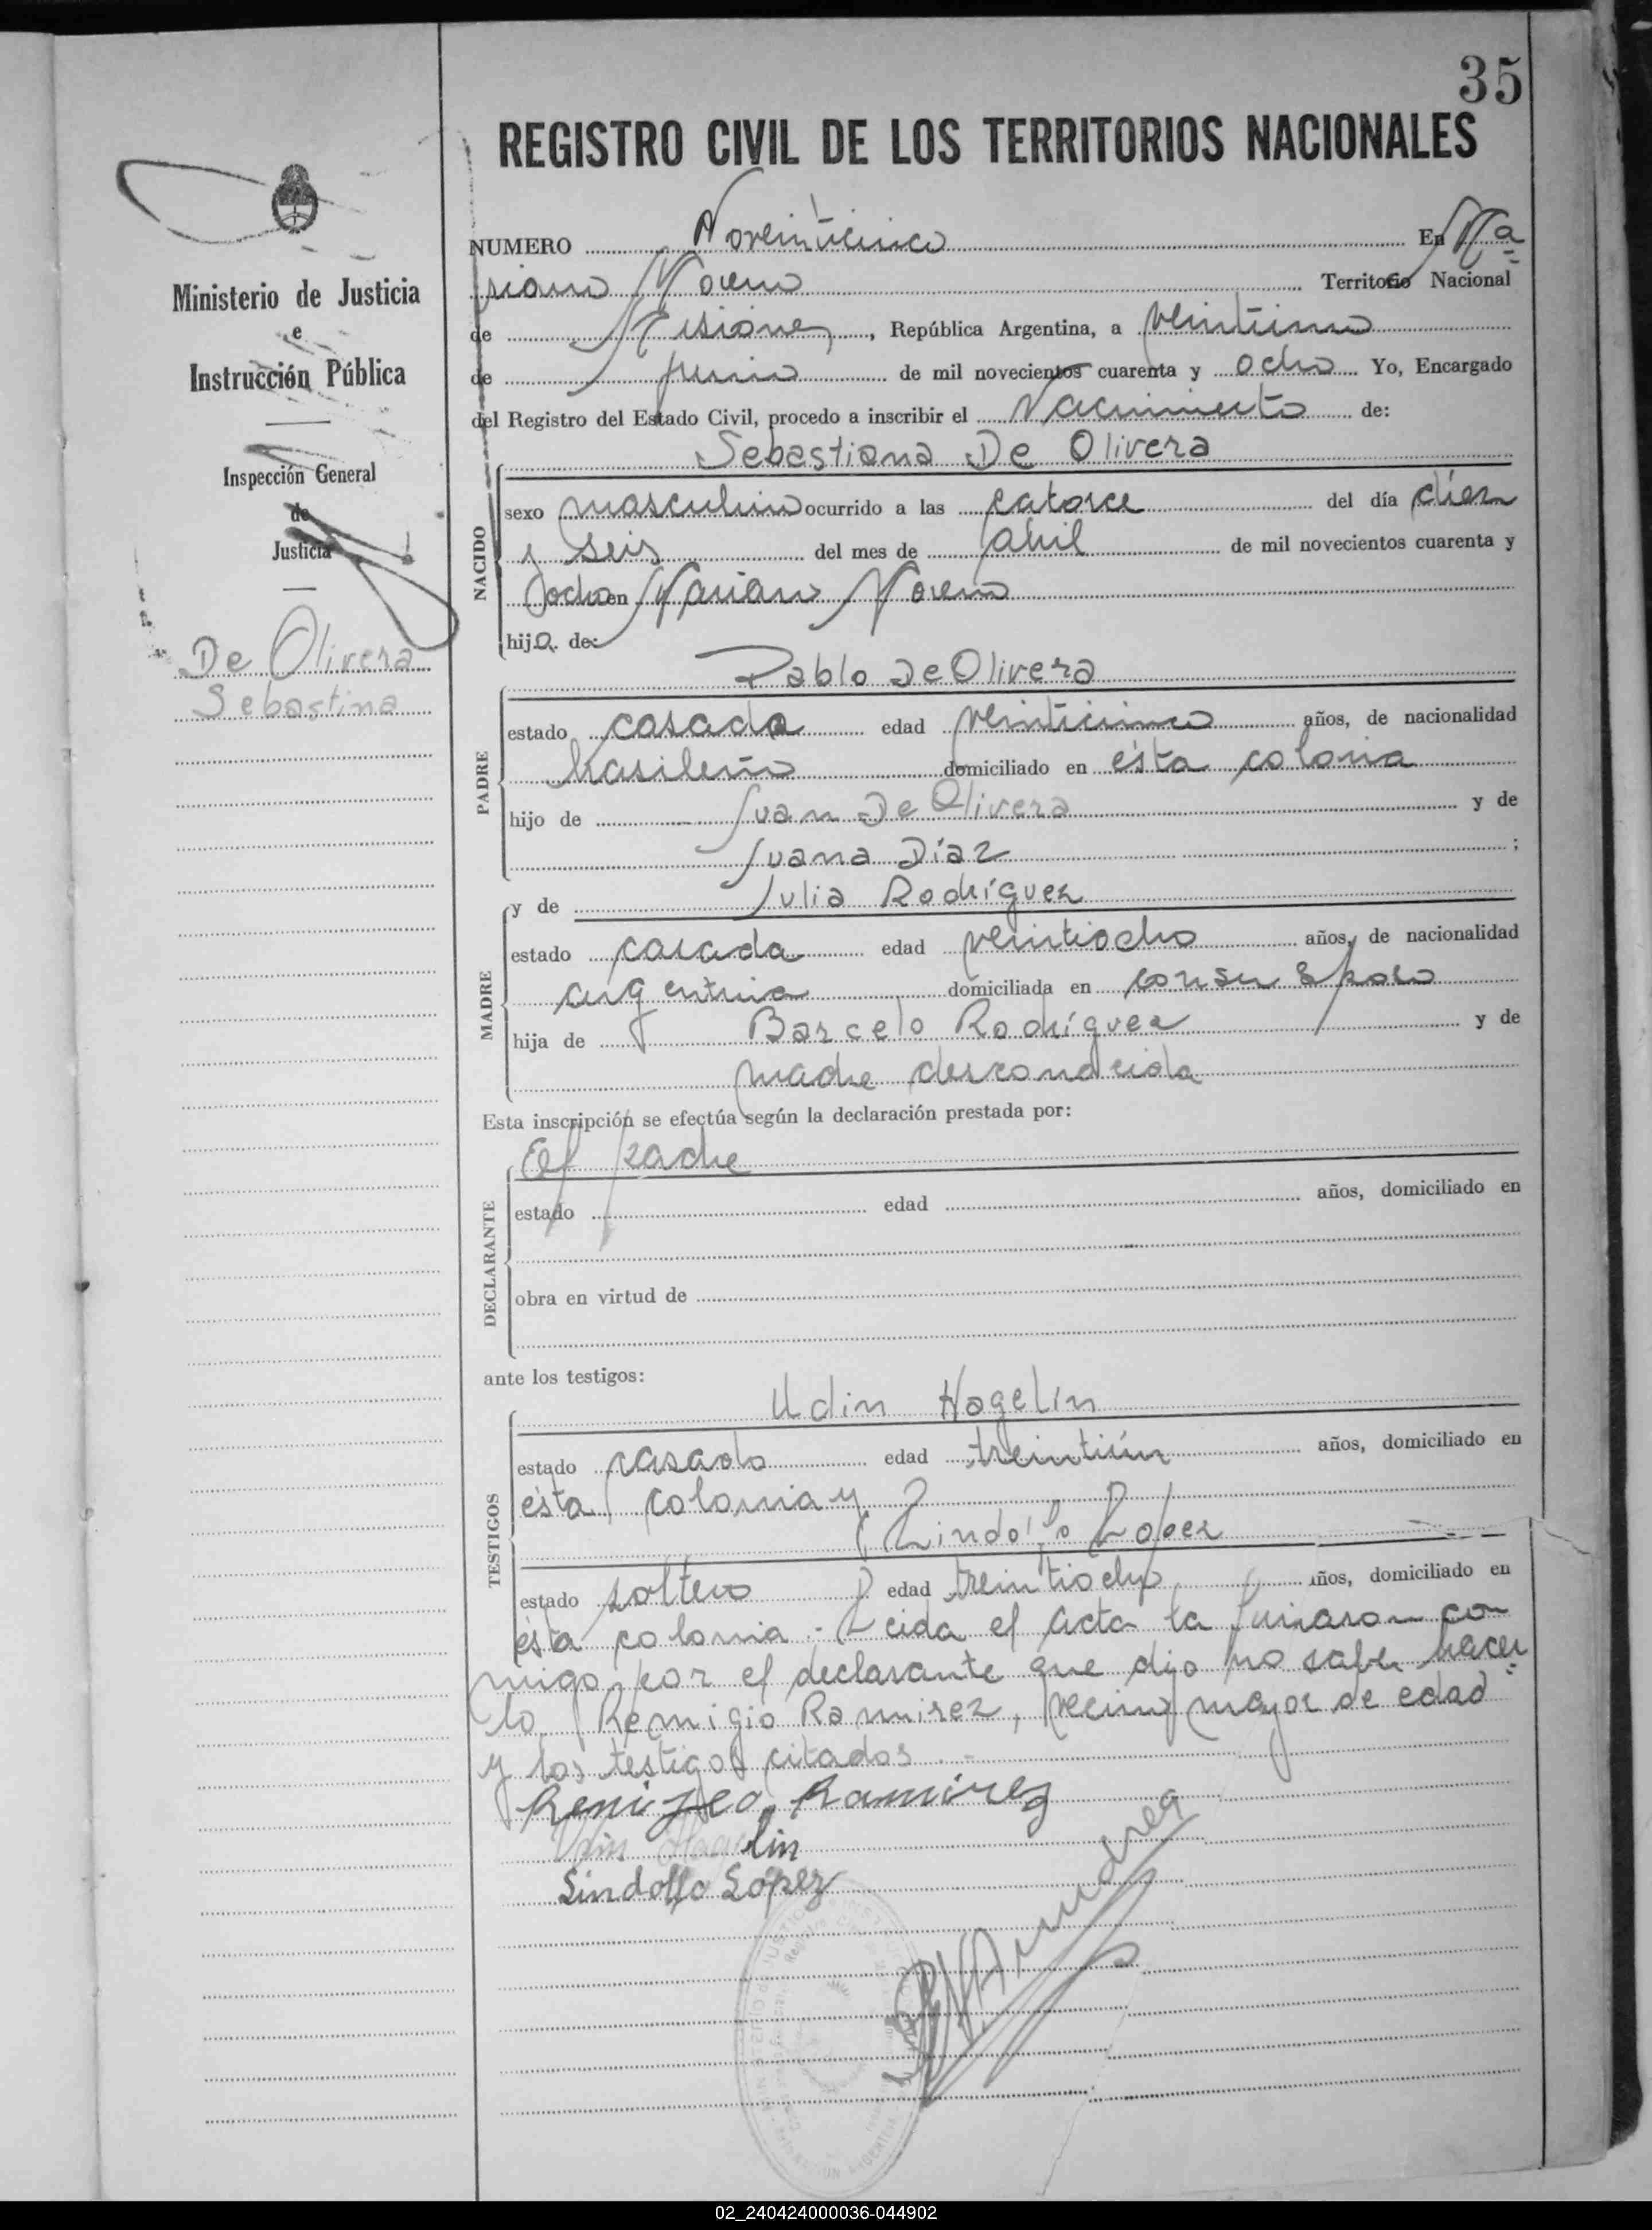 35
REGISTRO CIVIL DE LOS TERRITORIOS NACIONALES
NUMERO Noveinticinco En Ma
riano Moreno Territorio Nacional
de Misiones, República Argentina, a
de junio de mil novecientos cuarenta y ocho Yo, Encargado
del Registro del Estado Civil, procedo a inscribir el Nacimiento de:
Ministerio de Justicia
e
Instrucción Pública
Inspección General
de
Justicia
De Olivera
Sebastina
NACIDO
Sebastiana De Olivera
sexo masculino ocurrido a las catorce del día diez
y seis del mes de abril de mil novecientos cuarenta y
ocho en Mariano Moreno
hijo. de:
PADRE
Pablo De Olivera
estado casado edad veinticinco años, de nacionalidad
brasileño domiciliado en ésta colonia
hijo de Juan De Olivera y de
Juana Díaz ;
y de Julia Rodríguez
MADRE
estado casada edad veintiocho años, de nacionalidad
argentina domiciliada en con su esposo
hija de Barcelo Rodríguez y de
madre desconocida
Esta inscripción se efectúa según la declaración prestada por:
DECLARANTE
el padre
estado edad años, domiciliado en
obra en virtud de
ante los testigos:
TESTIGOS
Udin Hagelin
estado casado edad treintiún años, domiciliado en
ésta colonia y
Lindolfo Lopez
estado soltero edad treintiocho años, domiciliado en
ésta colonia.- Leida el acta la firmaron con
migo por el declarante que dijo no saber hacer
lo Remigio Ramirez, vecino mayor de edad
y los testigos citados.-
Remigeo Ramirez
Udin Hagelin
Lindolfo López
02_240424000036-044902